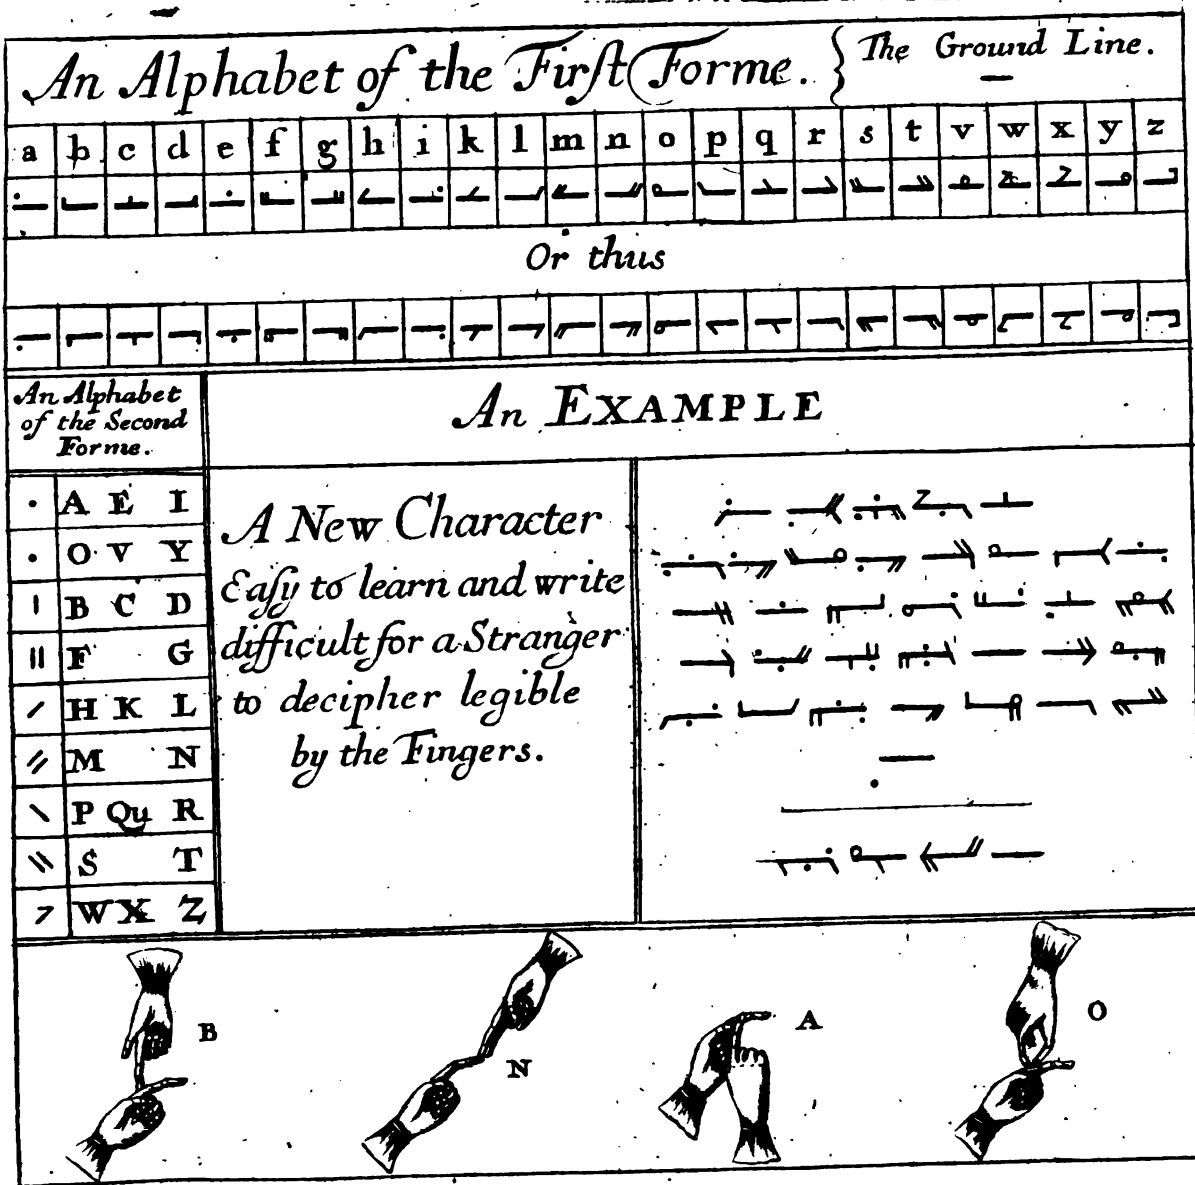 An Alphabet of the Firſt Forme. { The Ground Line.
a b c d e f g h i k l m n o p q r s t v w x y z
Or thus
An Alphabet
of the Second
Forme.
An EXAMPLE
A E I
O V Y
B C D
F G
H K L
M N
P Qu R
S T
W X Z
A New Character
Eaſy to learn and write
difficult for a Stranger
to decipher legible
by the Fingers.
B
N
A
O